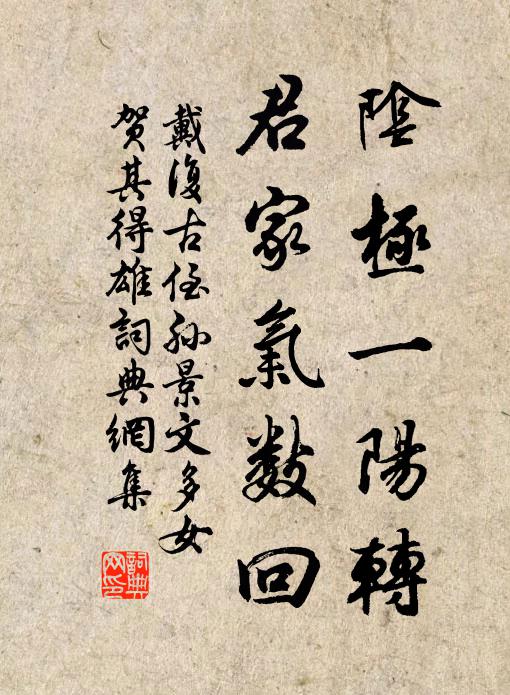 陰極一陽轉
君家氣数回
戴復古侄孫景文多女
賀其得雄詞典網集
詞典
网印